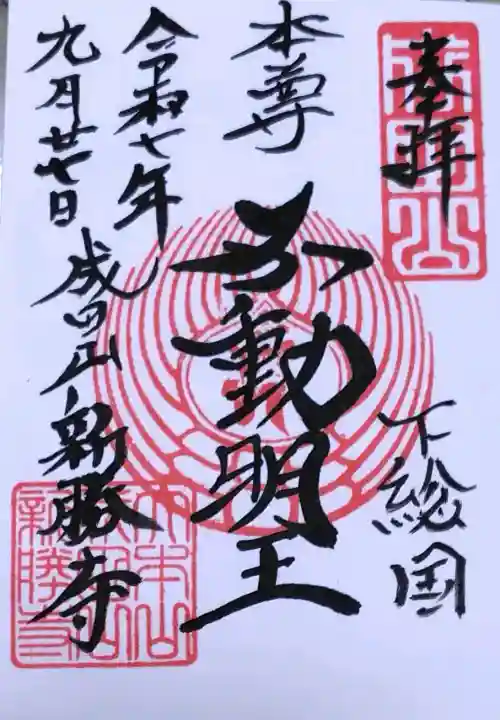 奉拝
下総国
本尊
不動明王
令和七年
九月廿七日
成田山新勝寺
成田山
大本山成田山新勝寺